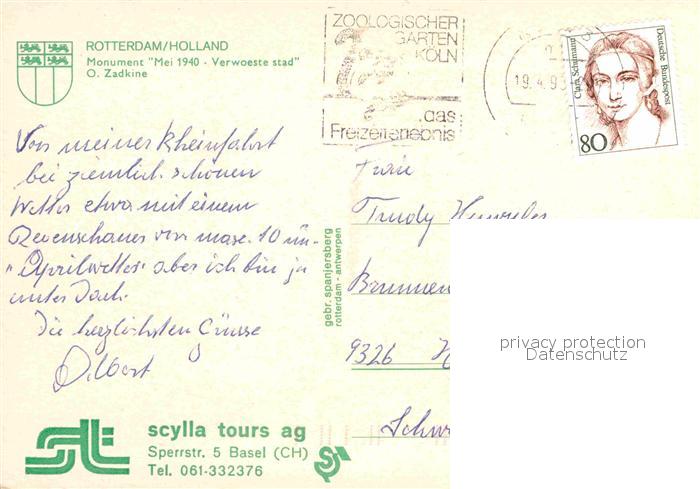 ROTTERDAM/HOLLAND
Monument "Mei 1940 - Verwoeste stad"
O. Zadkine
ZOOLOGISCHER
GARTEN
KÖLN
...das
Freizeiterlebnis
19.4.93
Clara Schumann
Deutsche Bundespost
80
Von meiner Rheinfahrt
bei ziemlich schönen
Wetter etwa mit einem
Regenschauer von max. 10 min.
"Aprilwetter" aber ich bin ja
unter Dach.
Die herzlichsten Grüsse
Albert
Frau
Trudy
Brunnen
9326 H
Schw
gebr. spanjersberg
rotterdam - antwerpen
privacy protection
Datenschutz
scylla tours ag
Sperrstr. 5 Basel (CH)
Tel. 061-332376